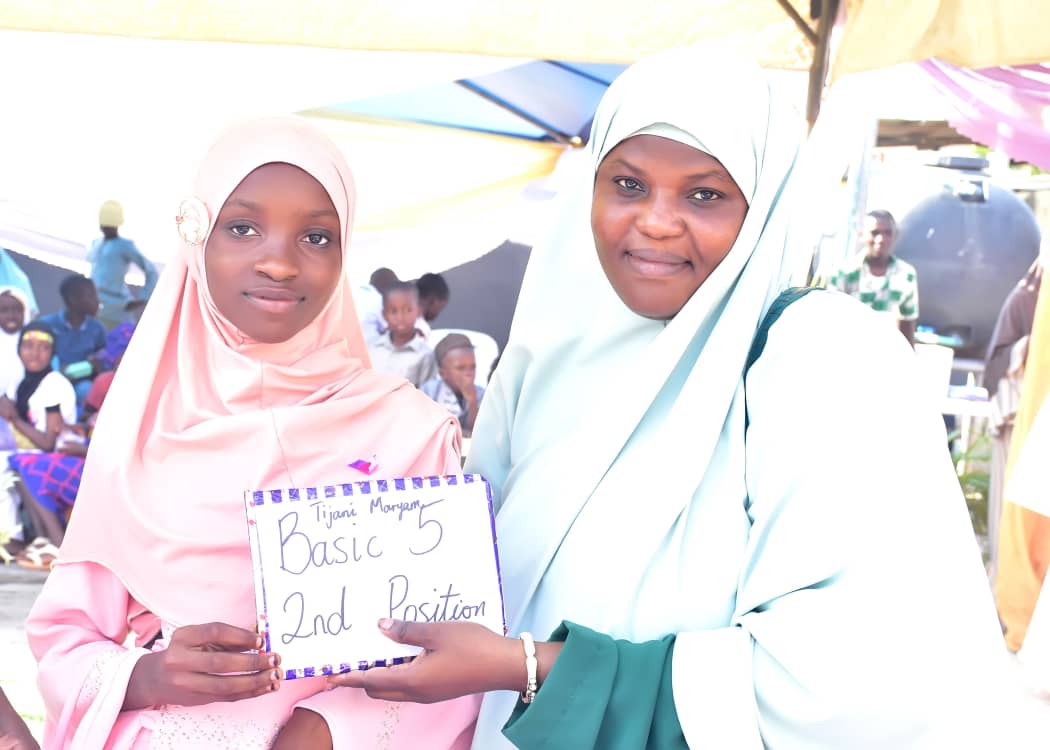 Tijani Maryam
Basic 5
2nd Position